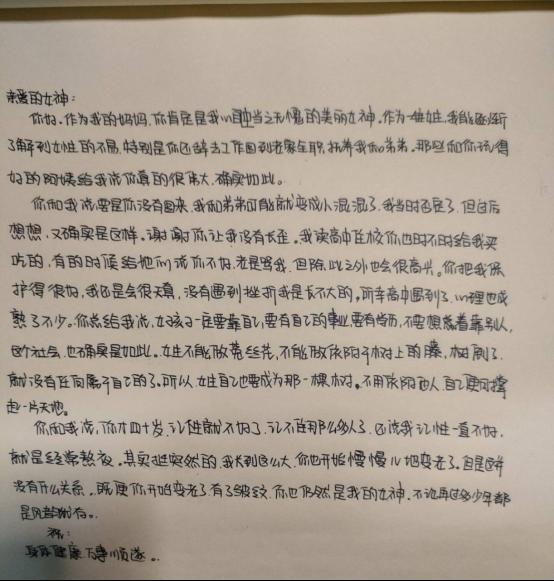 亲爱的女神:
你好。作为我的妈妈,你肯定是我心目中当之无愧的美丽女神。作为一位女性,我能逐渐
了解到女性的不易,特别是你还辞去工作回到老家全职抚养我和弟弟。那些和你玩得
好的阿姨给我说你真的很伟大,确实如此。
你和我说,要是你没有回来,我和弟弟可能就变成小混混了,我当时否定了,但过后
想想,又确实是这样。谢谢你让我没有长歪。我读高中在校你也时不时给我买
吃的,有的时候给他们说你不好,老是骂我,但除此之外也会很高兴。你把我保
护得很好,我还是会很天真,没有遇到挫折我是长不大的。所幸高中遇到了,心理也成
熟了不少。你总给我说,女孩子一定要靠自己,要有自己的事业,要有学历,不要想着靠别人,
这个社会,也确实是如此。女生不能做菟丝花,不能做依附于树上的藤,树刷了
就没有任何属于自己的了。所以女生自己也要成为那一棵树。不用依附他人,自己便可撑
起一片天地。
你和我说,你才四十岁,记性就不好了,记不住那么多人了,还说我记性一直不好,
就是经常熬夜。其实挺突然的,我长到这么大,你也开始慢慢儿地变老了。但是这并
没有什么关系。既便你开始变老了,有了皱纹,你也仍然是我的女神。不论再过多少年都
是
祝:
身体健康 万事顺遂。